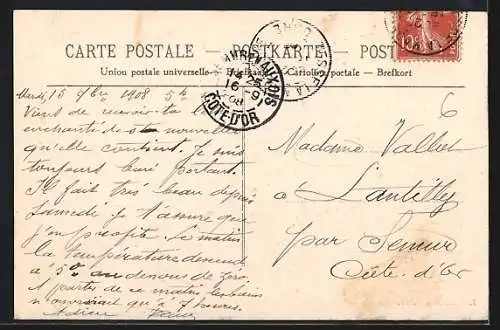 CARTE POSTALE — POSTKARTE — POST
Union postale universelle — Briefkaart — Cartolina postale — Brefkort
15 9bre 1908 5h
Viens de recevoir ta
enchanté de nouvelle
qu'elle contient. Je suis
toujours bien portant.
Il fait très beau depuis
Samedi je t'assure que
j'en profite. Ce matin
la température descend
à 5° au dessous de zéro
A partir de ce matin les bains
n'ouvriront qu'à 7 heures.
Adieu
COTE-D'OR
16-9
08
10c
6
Madame Valbet
à Lantilly
par Semur
Côte-d'Or